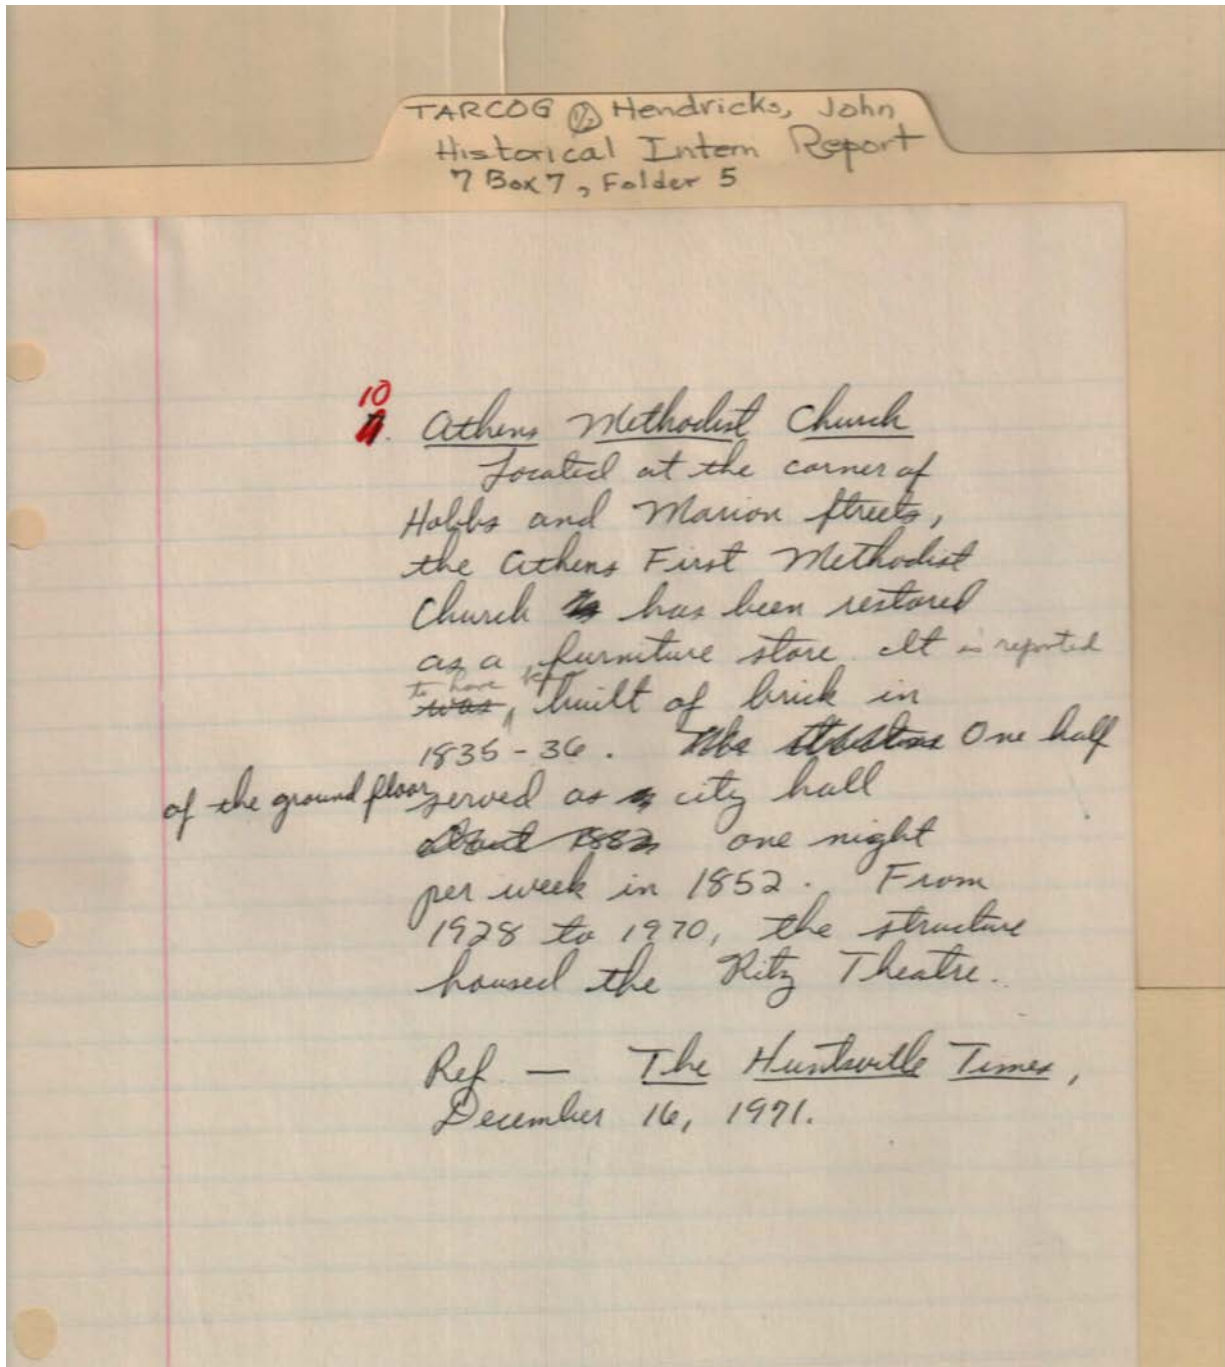 TARCOG 1/2 Hendricks, John
Historical Intern Report
7 Box 7, Folder 5
10
. Athens Methodist Church
Located at the corner of
Hobbs and Marion Streets,
the Athens First Methodist
Church has been restored
as a furniture store. It is reported
to have
was, built of brick in
1835-36. One half
of the ground floor served as city hall
about 1882 one night
per week in 1852. From
1928 to 1970, the structure
housed the Ritz Theatre.
Ref. — The Huntsville Times,
December 16, 1971.